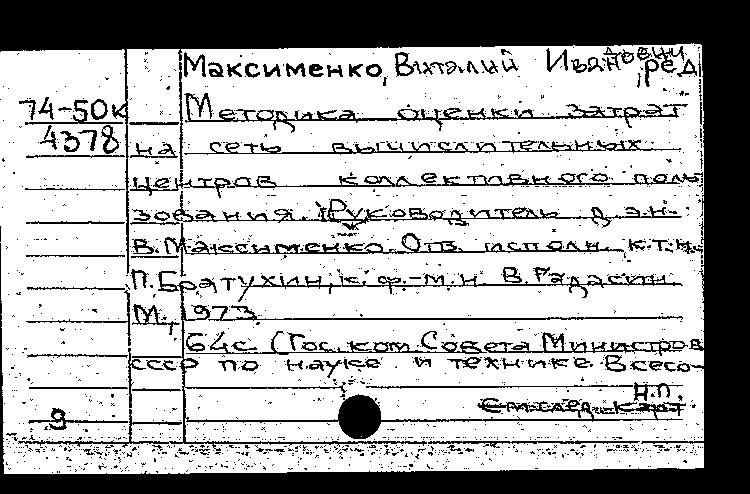 Максименко, Виталий Иванович, ред.
74-50к Методика оценки затрат
4378 на сеть вычислительных
центров коллективного поль
зования. Руководитель д.э.н.
В. Максименко. Отв. исполн. к.т.н.
П. Братухин, к. ф.-м. н. В. Радасин.
М., 1973
64с. (Гос. ком. Совета Министров
СССР по науке и технике. Всесо-
н.п.
9 См. след. карт.